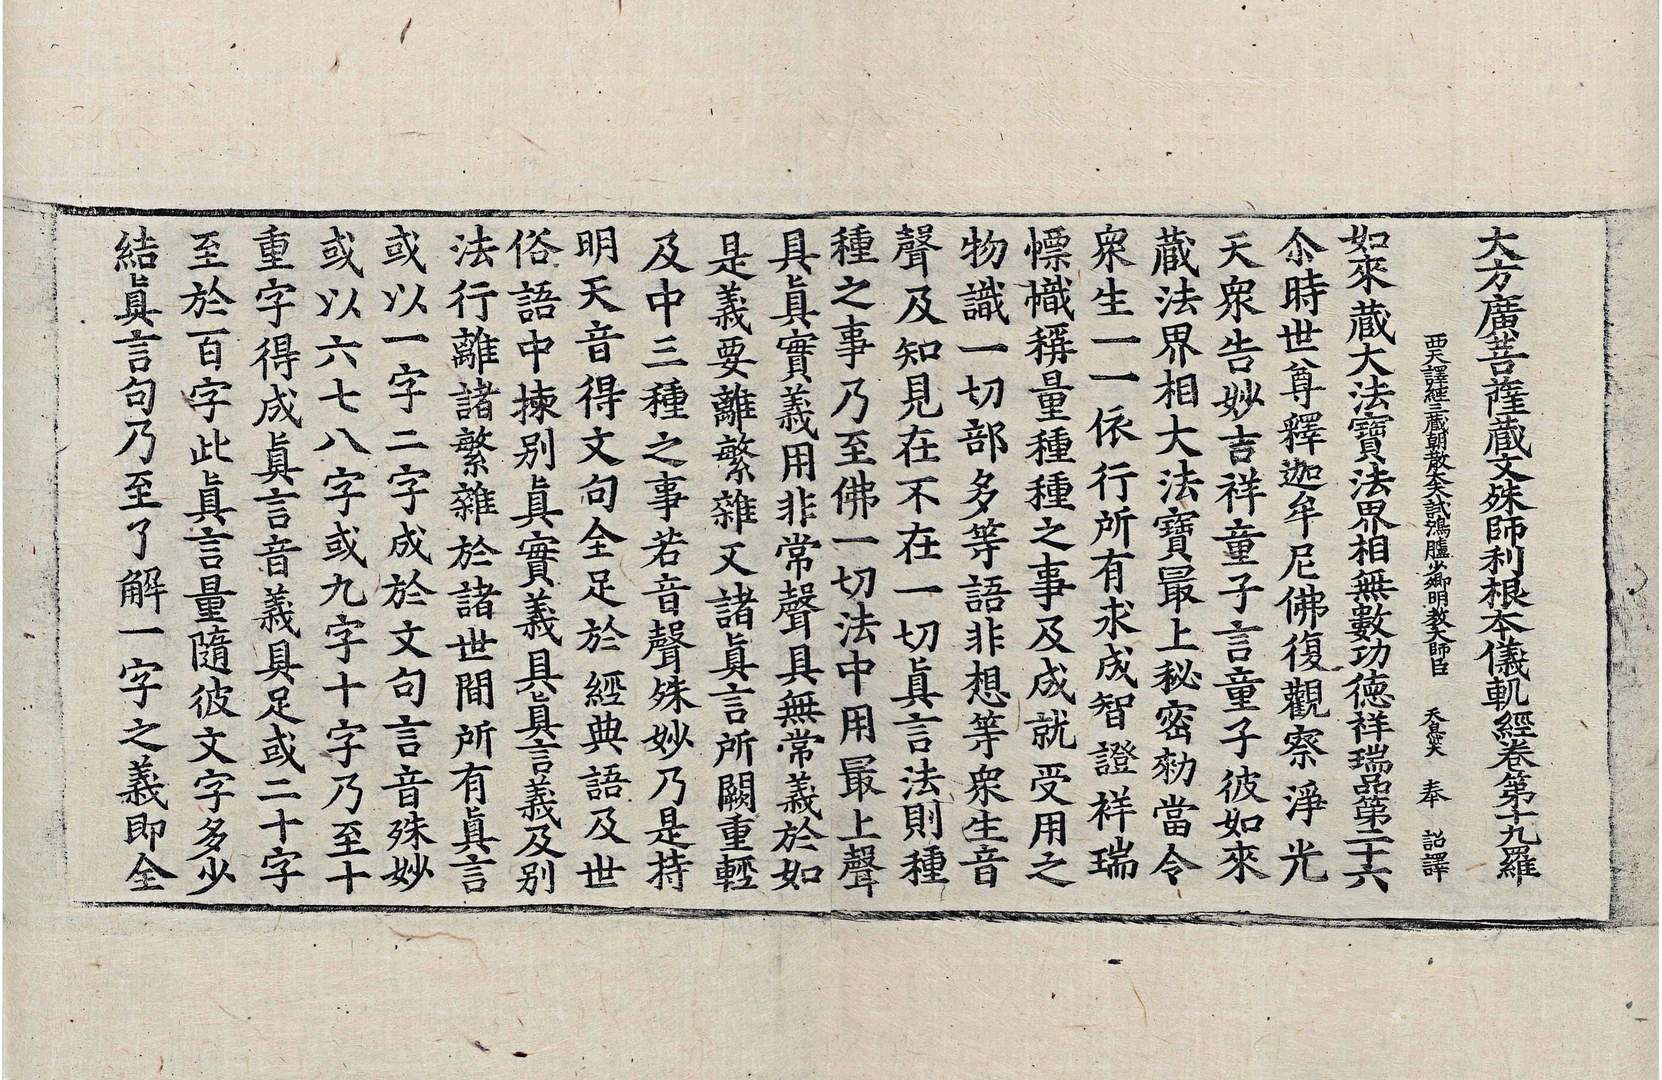 大方廣菩薩藏文殊師利根本儀軌經卷第十九羅
西天譯經三藏朝散大夫試鴻臚少卿明教大師臣 天息災 奉 詔譯
如來藏大法寶法界相無數功德祥瑞品第二十六
尒時世尊釋迦牟尼佛復觀察淨光
天衆告妙吉祥童子言童子彼如來
藏法界相大法寶最上秘密勑當令
衆生一一依行所有求成智證祥瑞
幖幟稱量種種之事及成就受用之
物識一切部多等語非想等衆生音
聲及知見在不在一切眞言法則種
種之事乃至佛一切法中用最上聲
具眞實義用非常聲具無常義於如
是義要離繁雜又諸眞言所闕重輕
及中三種之事若音聲殊妙乃是持
明天音得文句全足於經典語及世
俗語中揀別眞實義具眞言義及別
法行離諸繁雜於諸世間所有眞言
或以一字二字成於文句言音殊妙
或以六七八字或九字十字乃至十
重字得成眞言音義具足或二十字
至於百字此眞言量隨彼文字多少
結眞言句乃至了解一字之義即全